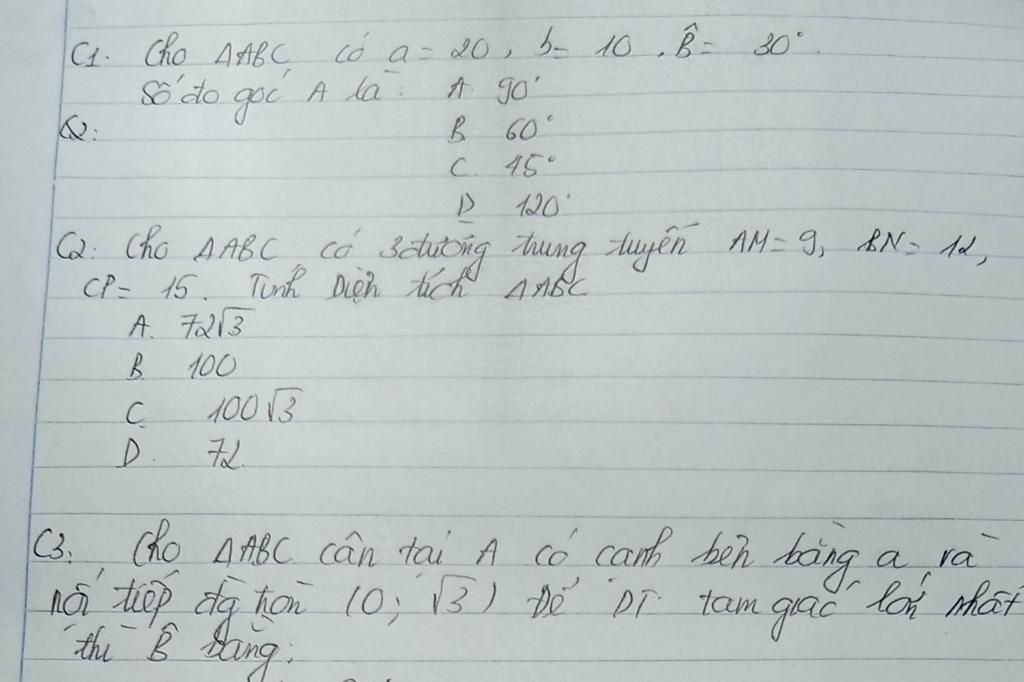 C1. Cho ΔABC có a = 20, b = 10. B̂ = 30°.
Số đo góc A là: A. 90°
C2: B 60°
C. 15°
D 120°
C2: Cho ΔABC, có 3 đường trung tuyến AM = 9, BN = 12,
CP = 15. Tính Diện tích ΔABC
A. 72√3
B. 100
C. 100√3
D. 72.
C3. Cho ΔABC cân tai A có canh bên bằng a, và
nội tiếp đg tròn (O; √3) Để DT tam giác lớn nhất
thì B̂ bằng: